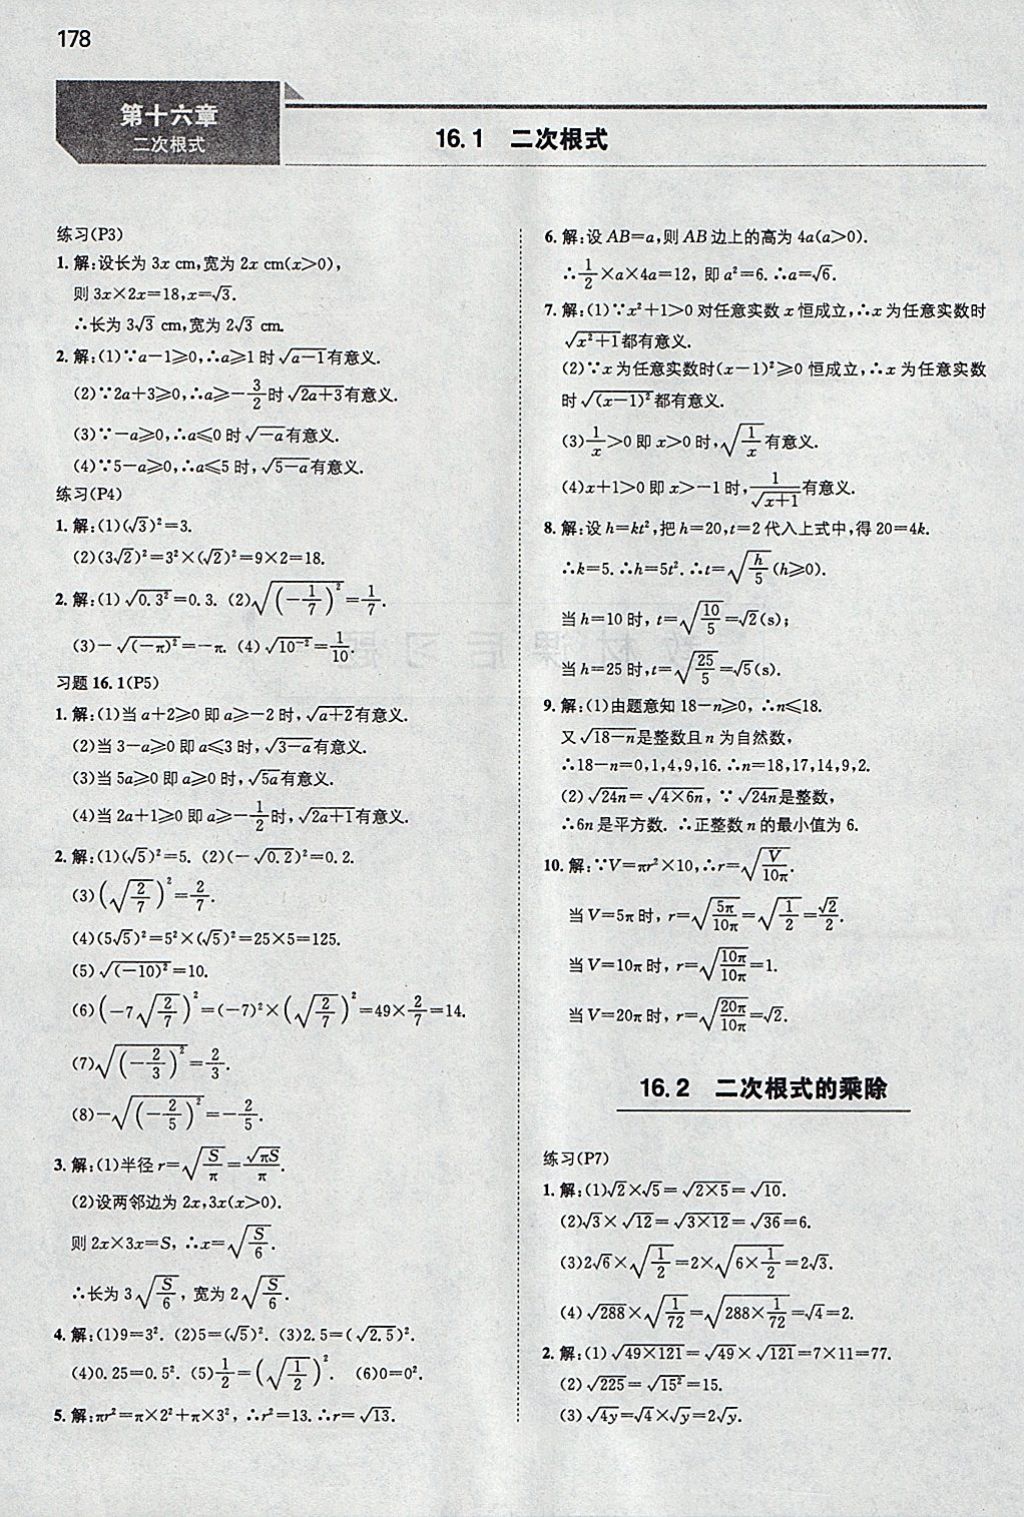 178
第十六章
二次根式
16.1 二次根式
练习(P3)
1. 解:设长为 3x cm,宽为 2x cm(x>0),
则 3x×2x=18,x=√3.
∴长为 3√3 cm,宽为 2√3 cm.
2. 解:(1)∵a-1≥0,∴a≥1 时 √(a-1) 有意义.
(2)∵2a+3≥0,∴a≥-3/2 时 √(2a+3) 有意义.
(3)∵-a≥0,∴a≤0 时 √(-a) 有意义.
(4)∵5-a≥0,∴a≤5 时, √(5-a) 有意义.
练习(P4)
1. 解:(1)(√3)²=3.
(2)(3√2)²=3²×(√2)²=9×2=18.
2. 解:(1) √(0.3²)=0.3. (2) √((-1/7)²)=1/7.
(3)-√((-π)²)=-π. (4) √(10⁻²)=1/10.
习题 16.1(P5)
1. 解:(1)当 a+2≥0 即 a≥-2 时, √(a+2) 有意义.
(2)当 3-a≥0 即 a≤3 时, √(3-a) 有意义.
(3)当 5a≥0 即 a≥0 时, √(5a) 有意义.
(4)当 2a+1≥0 即 a≥-1/2 时, √(2a+1) 有意义.
2. 解:(1)(√5)²=5. (2)(-√0.2)²=0.2.
(3)(√(2/7))²=2/7.
(4)(5√5)²=5²×(√5)²=25×5=125.
(5) √((-10)²)=10.
(6)(-7√(2/7))²=(-7)²×(√(2/7))²=49×2/7=14.
(7) √((-2/3)²)=2/3.
(8)-√((-2/5)²)=-2/5.
3. 解:(1)半径 r=√(S/π)=√(πS)/π.
(2)设两邻边为 2x,3x(x>0).
则 2x×3x=S, ∴x=√(S/6).
∴长为 3√(S/6), 宽为 2√(S/6).
4. 解:(1)9=3². (2)5=(√5)². (3)2.5=(√2.5)².
(4)0.25=0.5². (5)1/2=(√(1/2))². (6)0=0².
5. 解:πr²=π×2²+π×3², ∴r²=13. ∴r=√13.
6. 解:设 AB=a,则 AB 边上的高为 4a(a>0).
∴1/2×a×4a=12, 即 a²=6. ∴a=√6.
7. 解:(1)∵x²+1>0 对任意实数 x 恒成立,∴x 为任意实数时
√(x²+1) 都有意义.
(2)∵x 为任意实数时(x-1)²≥0 恒成立,∴x 为任意实数
时 √((x-1)²) 都有意义.
(3)1/x>0 即 x>0 时, √(1/x) 有意义.
(4)x+1>0 即 x>-1 时, 1/√(x+1) 有意义.
8. 解:设 h=kt²,把 h=20,t=2 代入上式中,得 20=4k.
∴k=5. ∴h=5t². ∴t=√(h/5) (h≥0).
当 h=10 时, t=√(10/5)=√2(s);
当 h=25 时, t=√(25/5)=√5(s).
9. 解:(1)由题意知 18-n≥0, ∴n≤18.
又 √(18-n) 是整数且 n 为自然数,
∴18-n=0,1,4,9,16. ∴n=18,17,14,9,2.
(2) √(24n)=√(4×6n), ∵ √(24n) 是整数,
∴6n 是平方数. ∴正整数 n 的最小值为 6.
10. 解:∵V=πr²×10,∴r=√(V/10π).
当 V=5π 时, r=√(5π/10π)=√(1/2)=√2/2.
当 V=10π 时, r=√(10π/10π)=1.
当 V=20π 时, r=√(20π/10π)=√2.
16.2 二次根式的乘除
练习(P7)
1. 解:(1)√2×√5=√(2×5)=√10.
(2)√3×√12=√(3×12)=√36=6.
(3)2√6×√(1/2)=2×√(6×1/2)=2√3.
(4) √288×√(1/72)=√(288×1/72)=√4=2.
2. 解:(1) √(49×121)=√49×√121=7×11=77.
(2) √225=√(15²)=15.
(3) √(4y)=√4×√y=2√y.